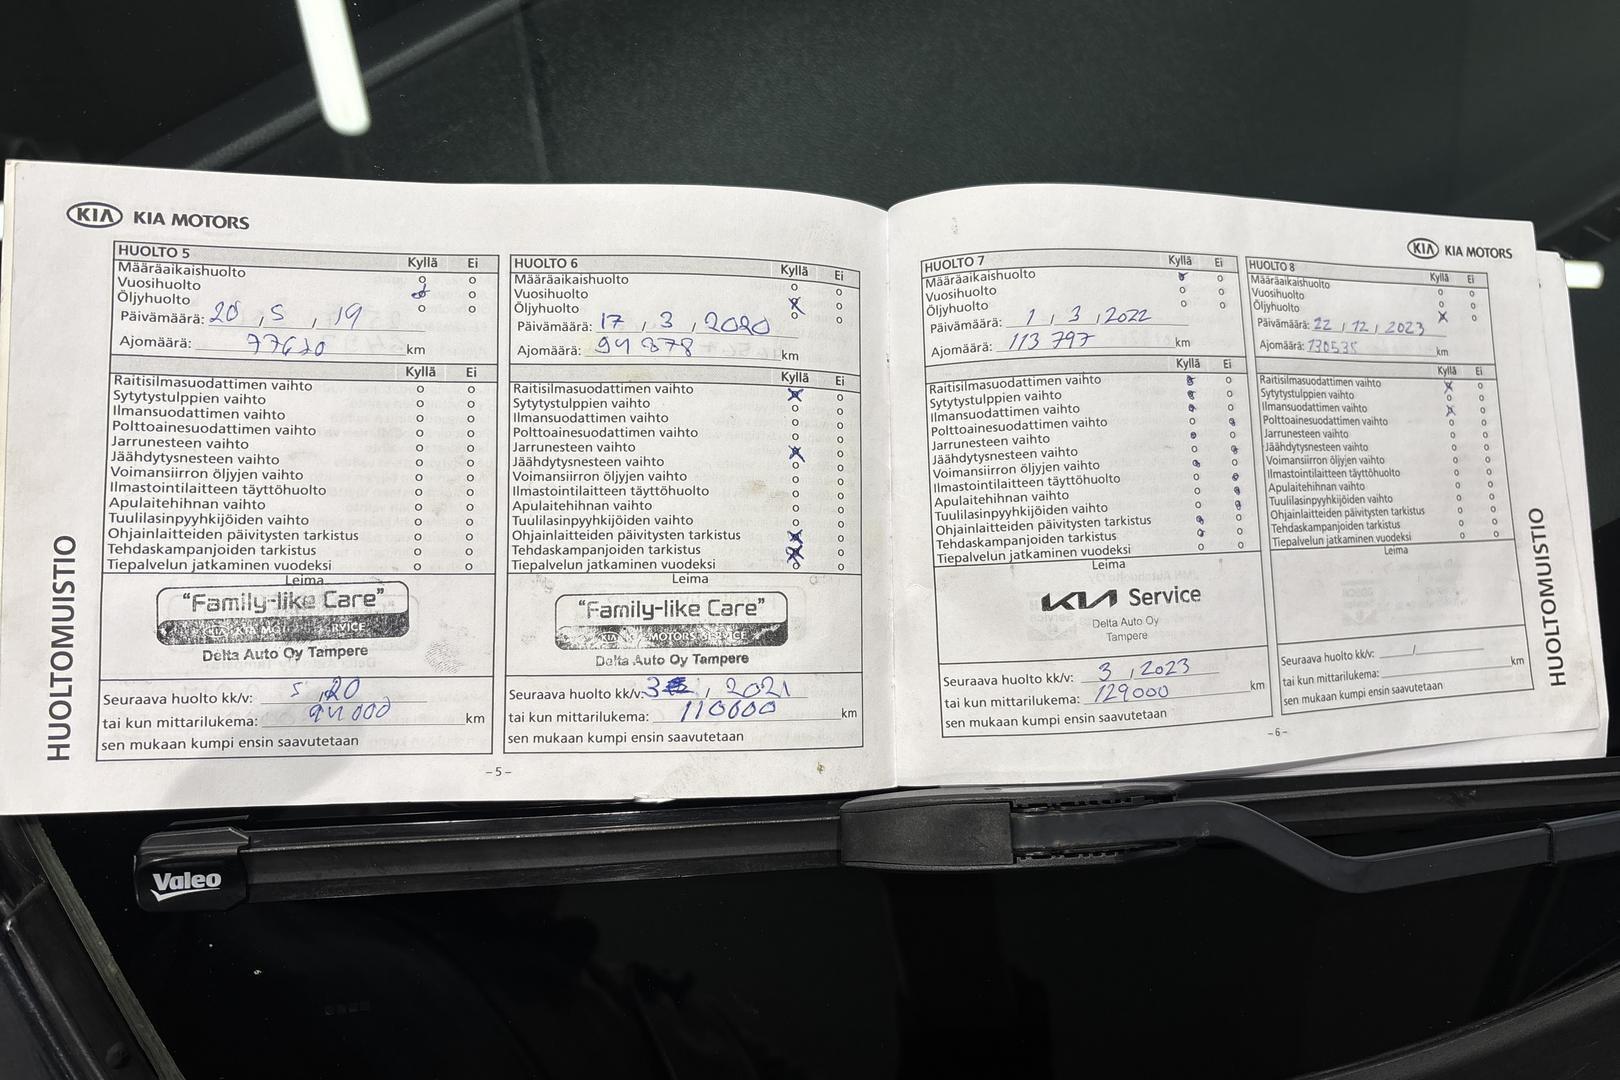 KIA KIA MOTORS
HUOLTOMUISTIO
HUOLTO 5
Kyllä Ei
Määräaikaishuolto
Vuosihuolto
Öljyhuolto
Päivämäärä: 20 , 5 , 19
Ajomäärä: 77620 km
Kyllä Ei
Raitisilmasuodattimen vaihto
Sytytystulppien vaihto
Ilmansuodattimen vaihto
Polttoainesuodattimen vaihto
Jarrunesteen vaihto
Jäähdytysnesteen vaihto
Voimansiirron öljyjen vaihto
Ilmastointilaitteen täyttöhuolto
Apulaitehihnan vaihto
Tuulilasinpyyhkijöiden vaihto
Ohjainlaitteiden päivitysten tarkistus
Tehdaskampanjoiden tarkistus
Tiepalvelun jatkaminen vuodeksi
Leima
"Family-like Care"
Delta Auto Oy Tampere
Seuraava huolto kk/v: 5 , 20
tai kun mittarilukema: 94 000 km
sen mukaan kumpi ensin saavutetaan
HUOLTO 6
Kyllä Ei
Määräaikaishuolto
Vuosihuolto
Öljyhuolto
Päivämäärä: 17 , 3 , 2020
Ajomäärä: 94 378 km
Kyllä Ei
Raitisilmasuodattimen vaihto
Sytytystulppien vaihto
Ilmansuodattimen vaihto
Polttoainesuodattimen vaihto
Jarrunesteen vaihto
Jäähdytysnesteen vaihto
Voimansiirron öljyjen vaihto
Ilmastointilaitteen täyttöhuolto
Apulaitehihnan vaihto
Tuulilasinpyyhkijöiden vaihto
Ohjainlaitteiden päivitysten tarkistus
Tehdaskampanjoiden tarkistus
Tiepalvelun jatkaminen vuodeksi
Leima
"Family-like Care"
KIA MOTORS SERVICE
Delta Auto Oy Tampere
Seuraava huolto kk/v: 3 , 2021
tai kun mittarilukema: 110000 km
sen mukaan kumpi ensin saavutetaan
- 5 -
KIA KIA MOTORS
HUOLTO 7
Kyllä Ei
Määräaikaishuolto
Vuosihuolto
Öljyhuolto
Päivämäärä: 1 , 3 , 2022
Ajomäärä: 113 797 km
Kyllä Ei
Raitisilmasuodattimen vaihto
Sytytystulppien vaihto
Ilmansuodattimen vaihto
Polttoainesuodattimen vaihto
Jarrunesteen vaihto
Jäähdytysnesteen vaihto
Voimansiirron öljyjen vaihto
Ilmastointilaitteen täyttöhuolto
Apulaitehihnan vaihto
Tuulilasinpyyhkijöiden vaihto
Ohjainlaitteiden päivitysten tarkistus
Tehdaskampanjoiden tarkistus
Tiepalvelun jatkaminen vuodeksi
Leima
KIA Service
Delta Auto Oy
Tampere
Seuraava huolto kk/v: 3 , 2023
tai kun mittarilukema: 129000 km
sen mukaan kumpi ensin saavutetaan
HUOLTO 8
Kyllä Ei
Määräaikaishuolto
Vuosihuolto
Öljyhuolto
Päivämäärä: 22 , 12 , 2023
Ajomäärä: 130535 km
Kyllä Ei
Raitisilmasuodattimen vaihto
Sytytystulppien vaihto
Ilmansuodattimen vaihto
Polttoainesuodattimen vaihto
Jarrunesteen vaihto
Jäähdytysnesteen vaihto
Voimansiirron öljyjen vaihto
Ilmastointilaitteen täyttöhuolto
Apulaitehihnan vaihto
Tuulilasinpyyhkijöiden vaihto
Ohjainlaitteiden päivitysten tarkistus
Tehdaskampanjoiden tarkistus
Tiepalvelun jatkaminen vuodeksi
Leima
Seuraava huolto kk/v: /
tai kun mittarilukema: km
sen mukaan kumpi ensin saavutetaan
- 6 -
HUOLTOMUISTIO
Valeo